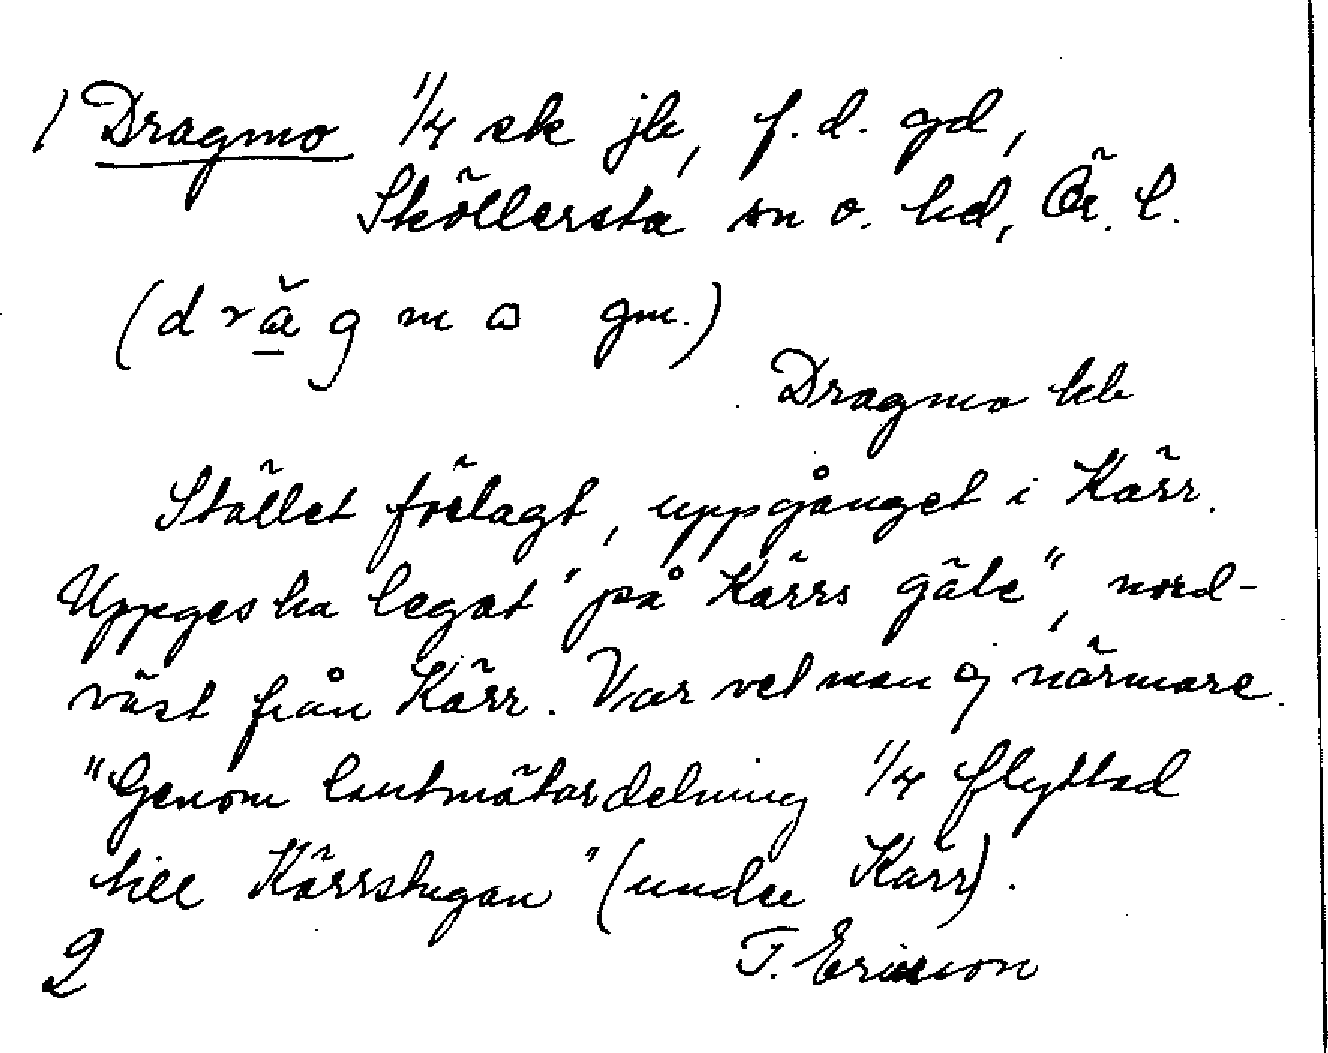 1 Dragmo 1/4 sk jb, f. d. gd,
Sköllersta sn o. hd, Ör. l.
(d r ă g m ω gm.)
Dragmo kb
Stället förlagt, uppgånget i Kärr.
Uppges ha legat "på Kärrs gäle", nord-
väst från Kärr. Var vet man ej närmare.
"Genom lantmätardelning 1/4 flyttad
till Kärrstugan" (under Kärr).
2 T. Ericsson